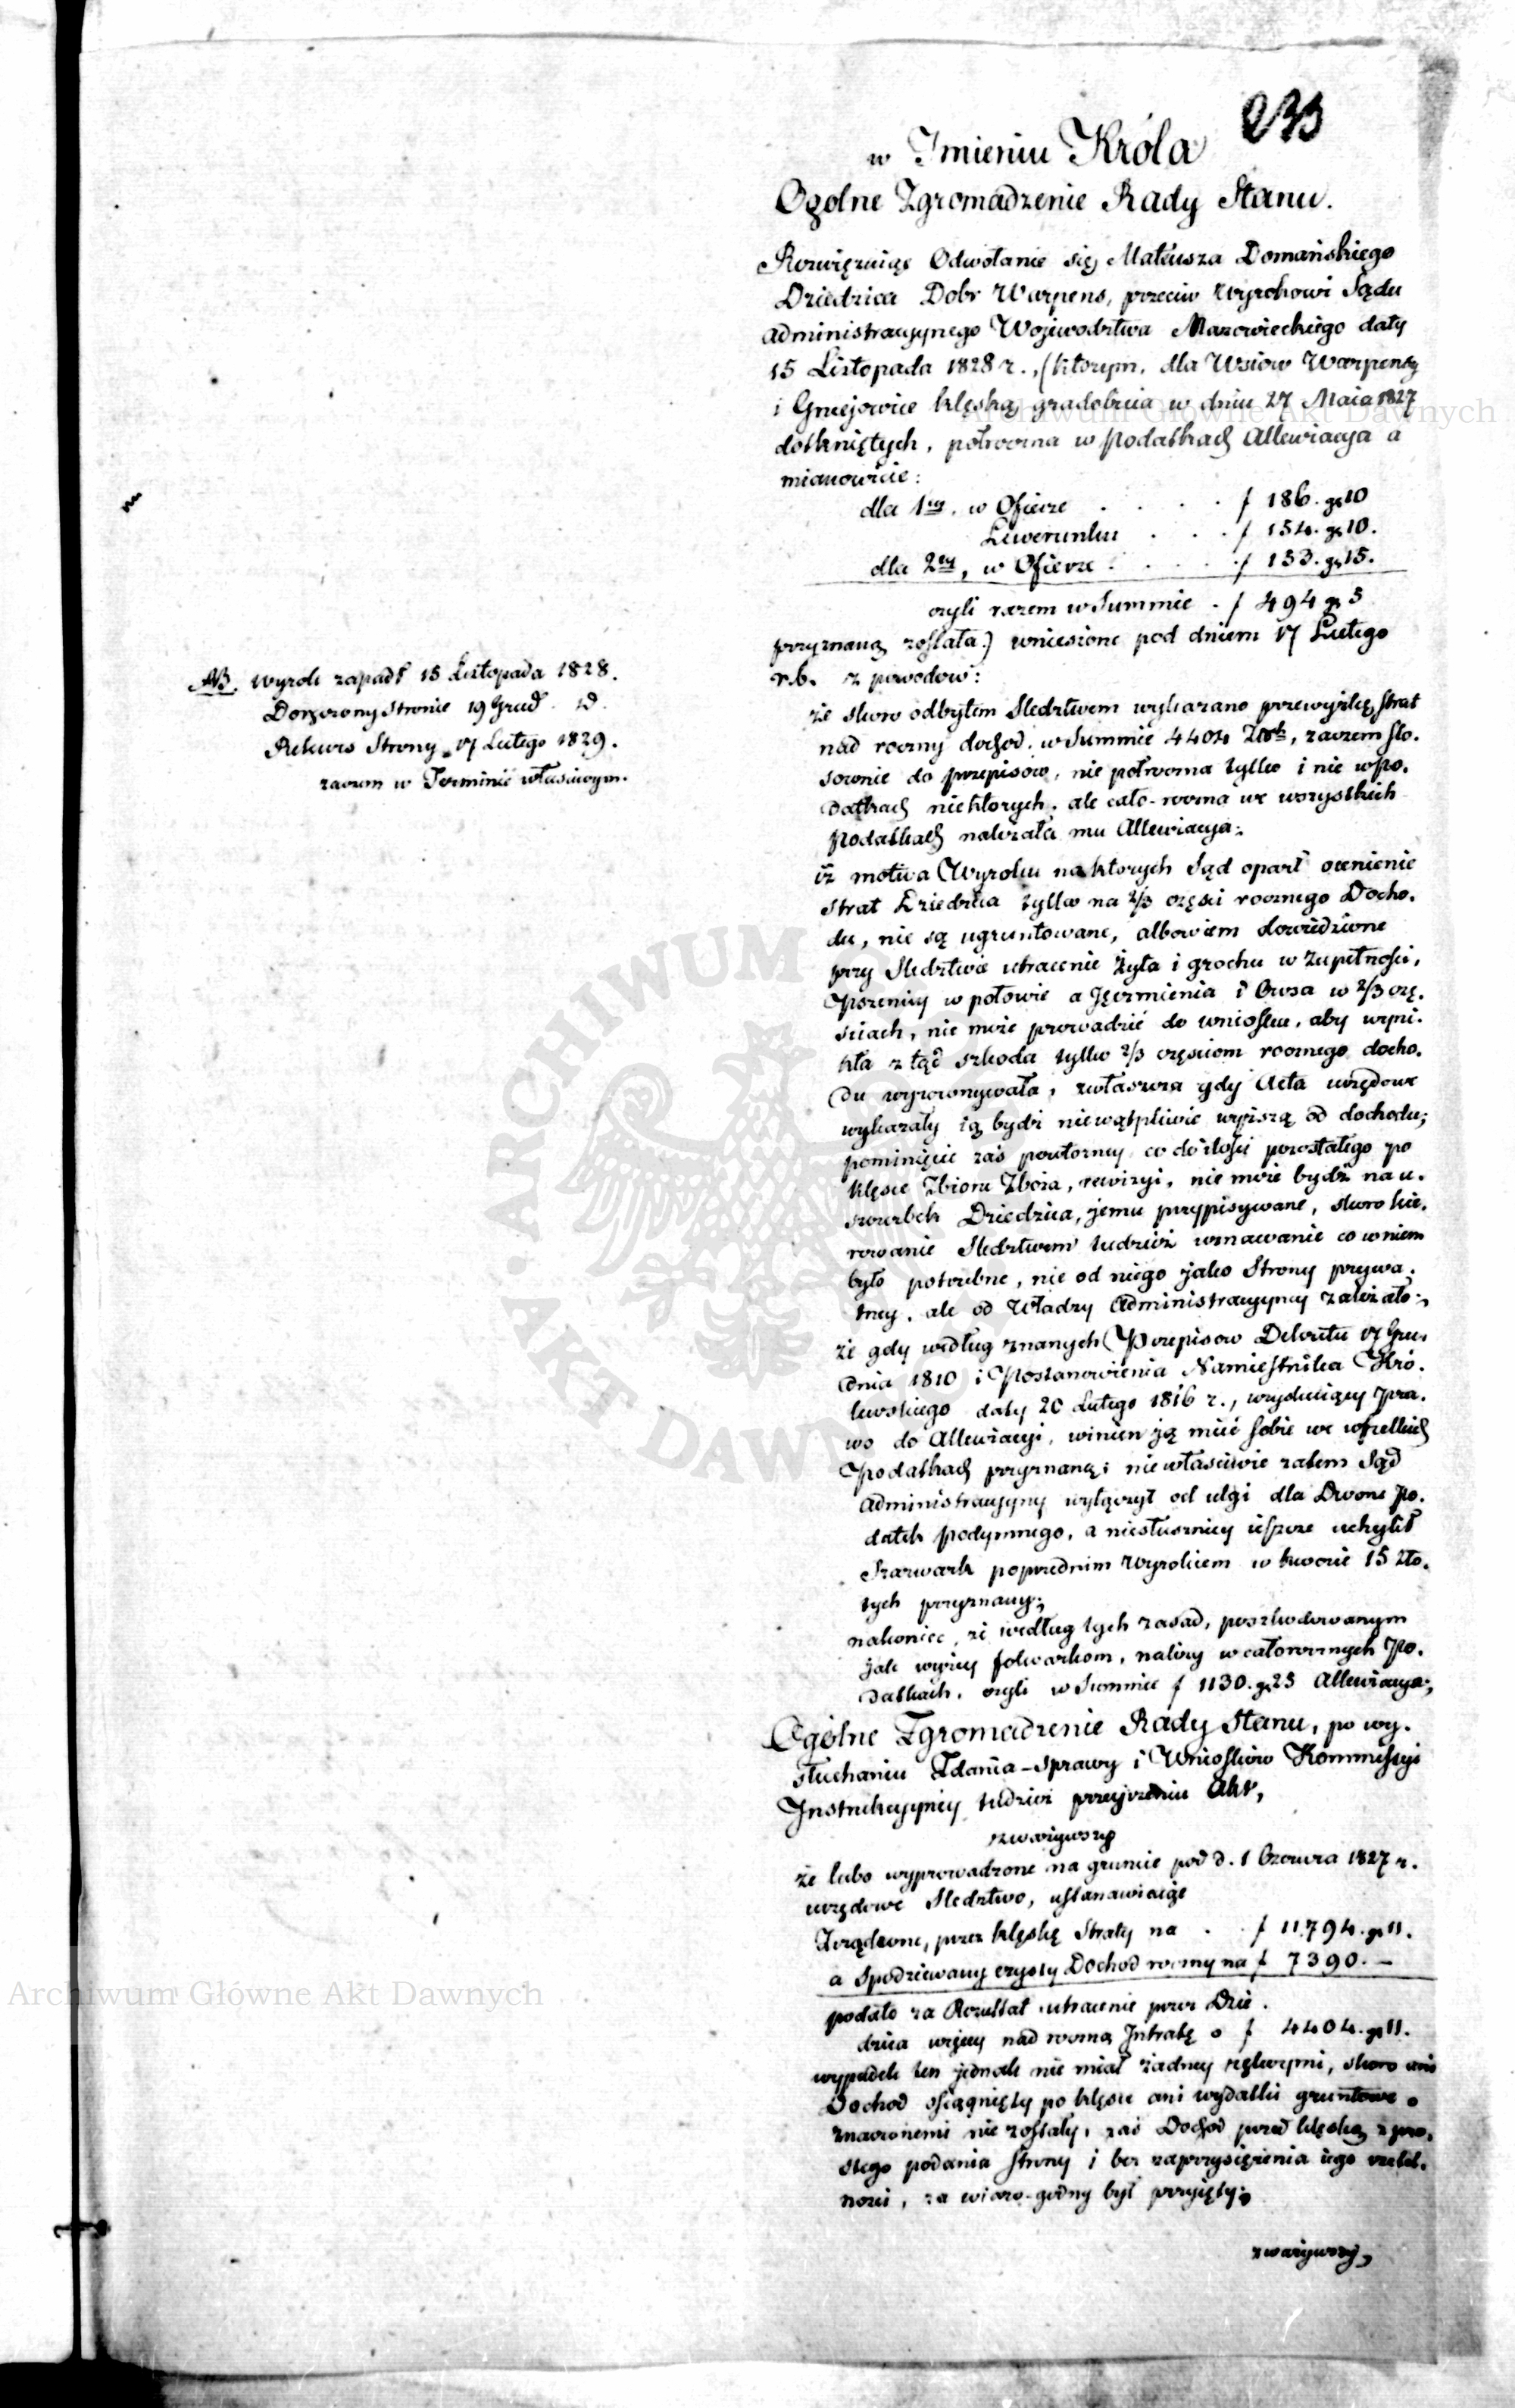 233
w Imieniu Króla
Ogolne Zgromadzenie Rady Stanu.
Rozwięzuiąc Odwołanie się Mateusza Domańskiego
Dziedzica Dobr Warpens, przeciw Wyrokowi Sądu
Administracyynego Wojewodztwa Mazowieckiego daty
15 Listopada 1828 r., (którym, dla Wsiow Warpensy
i Gniejowice klęską gradobicia w dniu 27 Maia 1827
dotkniętych, półroczna w Podatkach Allewiacya a
mianowicie:
dla 1ey, w Ofierze . . . . f 186. gr 10
Liwerunku . . . f 154. gr 10.
dla 2ey, w Ofierze . . . . . f 153. gr 15.
czyli razem w Summie . f 494 gr 5
przyznaną została.) wniesione pod dniem 17 Lutego
r.b. z powodow:
NB. Wyrok zapadł 15 Listopada 1828.
Doręczony Stronie 19 Grud. id.
Rekurs Strony 17 Lutego 1829.
zaczem w Terminie właściwym.
że skoro odbytem Sledztwem wykazano przewyżkę strat
nad roczny dochod, w Summie 4404 Złot, zaczem sto-
sownie do przepisów, nie półroczna tylko i nie w Po-
datkach niektorych, ale cało-roczna we wszystkich
Podatkach należała mu Allewiacya;
iż motwa Wyroku na ktorych Sąd oparł ocenienie
strat Dziedzica tylko na 2/3 części rocznego Docho-
du, nie są ugruntowane, albowiem dowiedzione
przy Sledztwie utracenie Żyta i grochu w Zupełności,
Pszenicy w połowie a Jęczmienia i Owsa w 2/3 czę-
sciach, nie może prowadzić do wniosku, aby wyni-
kła z tąd szkoda tylko 2/3 częsciom rocznego docho-
du wyrownywała, zwłaszcza gdy Akta urzędowe
wykazały ią bydz niewątpliwie wyższą od dochodu;
pominięcie zaś powtorney, co do ilości pozostałego po
klęsce Zbioru Zboża, rewizyi, nie może bydź na u-
szczerbek Dziedzica, jemu przypisywane, skoro kie-
rowanie Sledztwem tudzież uznawanie co w niem
było potrzebne, nie od niego jako Strony prywa-
tney, ale od Władzy Administracyyney zależało;
że gdy według znanych Przepisow Dekretu 17 Gru-
dnia 1810 i Postanowienia Namiestnika Kró-
lewskiego daty 20 Lutego 1816 r., wyskuiący Pra-
wo do Allewiacyi, winien ją mieć sobie we wszelkich
Podatkach przyznaną; niewłaściwie zatem Sąd
Administracyyny wyłączył od ulgi dla Dworu Po-
datek podymnego, a niesłuszniey ieszcze uchylił
Szarwark poprzednim Wyrokiem w kwocie 15 zło-
tych przyznany;
nakoniec, że według tych zasad, poszkodowanym
jak wyżey folwarkom, należy w całorocznych Po-
datkach, czyli w Summie f 1130. gr 25 Allewiacya;
Ogólne Zgromadzenie Rady Stanu, po wy-
słuchaniu Zdania-sprawy i Wniosków Kommissyi
Instrukcyyney tudzież przeyrzeniu Akt,
zważywszy
że lubo wyprowadzone na gruncie pod d. 1 Czerwca 1827 r.
urzędowe Sledztwo, ustanawiaiąc
Zrządzone, przez klęskę Straty na . . f 11,794. gr 11.
a Spodziewany czysty Dochod roczny na f 7390. —
podało za Rezultat utracenie przez Dzie-
dzica więcey nad roczną Intratę o f 4404. gr 11.
wypadek ten jednak nie miał żadney rękoymi, skoro ani
Dochod osiągnięty po klęsce ani wydatki gruntowe o-
znaczonemi nie zostały, zaś Dochod przed klęską z pro-
stego podania Strony i bez zaprzysiężenia iego rzetel-
ności, za wiaro-godny był przyięty;
zważywszy,
Archiwum Główne Akt Dawnych
Archiwum Główne Akt Dawnych
ARCHIWUM
AKT DAWNYCH